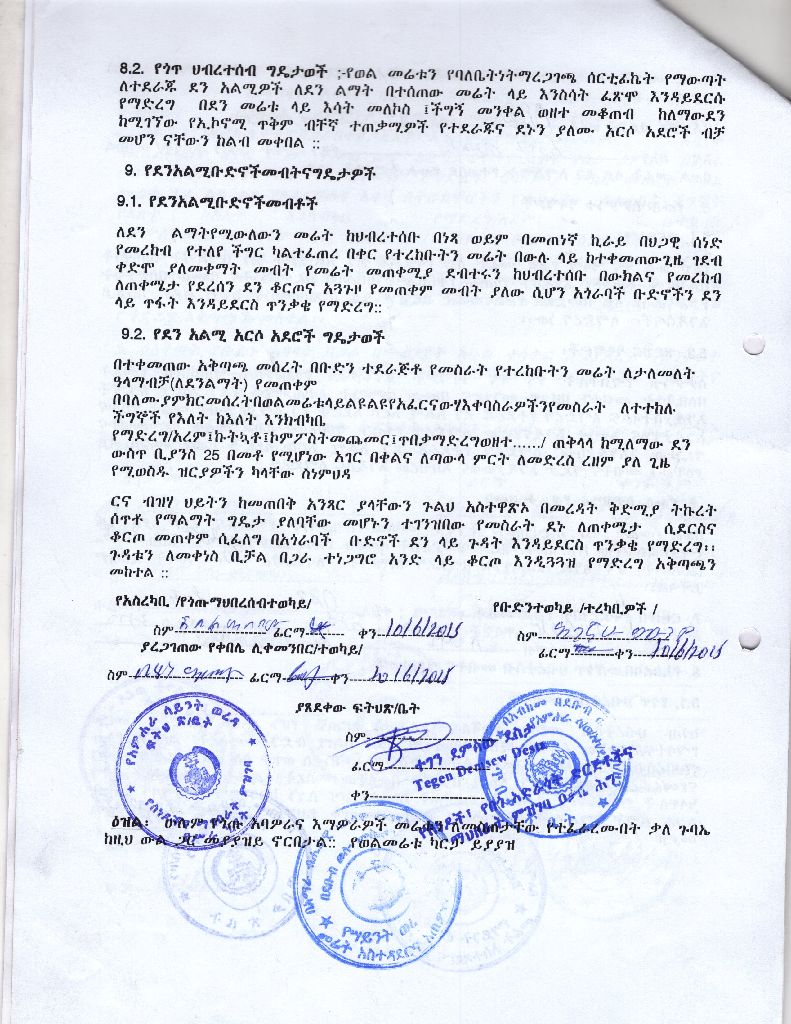 8.2. የጎጥ ህብረተሰብ ግዴታወች ;-የወል መሬቱን የባለቤትነትማረጋገጫ ሰርቲፊኬት የማውጣት
ለተደራጁ ደን አልሚዎች ለደን ልማት በተሰጠው መሬት ላይ እንስሳት ፈጽሞ እንዳይደርሱ
የማድረግ በደን መሬቱ ላይ እሳት መለኮስ ፤ችግኝ መንቀል ወዘተ መቆጠብ ከለማውደን
ከሚገኘው የኢኮኖሚ ጥቅም ብቸኛ ተጠቃሚዎች የተደራጁና ደኑን ያለሙ አርሶ አደሮች ብቻ
መሆን ናቸውን ከልብ መቀበል ፡፡
9. የደንአልሚቡድኖችመብትናግዴታዎች
9.1. የደንአልሚቡድኖችመብቶች
ለደን ልማትየሚውለውን መሬት ከህብረተሰቡ በነጻ ወይም በመጠነኛ ኪራይ በህጋዊ ሰነድ
የመረከብ የተለየ ችግር ካልተፈጠረ በቀር የተረከቡትን መሬት በውሉ ላይ ከተቀመጠውጊዜ ገደብ
ቀድሞ ያለመቀማት መብት የመሬት መጠቀሚያ ደብተሩን ከህብረተሰቡ በውክልና የመረከብ
ለጠቀሜታ የደረሰን ደን ቆርጦና አጓጉዞ የመጠቀም መብት ያለው ሲሆን አጎራባች ቡድኖችን ደን
ላይ ጥፋት እንዳይደርስ ጥንቃቄ የማድረግ፡፡
9.2. የደን አልሚ አርሶ አደሮች ግዴታወች
በተቀመጠው አቅጣጫ መሰረት በቡድን ተደራጅቶ የመስራት የተረከቡትን መሬት ለታለመለት
ዓላማብቻ(ለደንልማት) የመጠቀም
በባለሙያምክርመሰረትበወልመሬቱላይልዩልዩየአፈርናውሃእቀባስራዎችንየመስራት ለተተከሉ
ችግኞች የእለት ከእለት እንክብካቤ
የማድረግ/አረም፤ኩትኳቶ፤ኮምፖስትመጨመር፤ጥበቃማድረግወዘተ....../ ጠቅላላ ከሚለማው ደን
ውስጥ ቢያንስ 25 በመቶ የሚሆነው አገር በቀልና ለጣውላ ምርት ለመድረስ ረዘም ያለ ጊዜ
የሚወስዱ ዝርያዎችን ካላቸው ስነምህዳ
ርና ብዝሃ ህይትን ከመጠበቅ አንጻር ያላቸውን ጉልህ አስተዋጽኦ በመረዳት ቅድሚያ ትኩረት
ሰጥቶ የማልማት ግዴታ ያለባቸው መሆኑን ተገንዝበው የመስራት ደኑ ለጠቀሜታ ሲደርስና
ቆርጦ መጠቀም ሲፈለግ በአጎራባች ቡድኖች ደን ላይ ጉዳት እንዳይደርስ ጥንቃቄ የማድረግ፡፡
ጉዳቱን ለመቀነስ ቢቻል በጋራ ተነጋግሮ አንድ ላይ ቆርጦ እንዲጓጓዝ የማድረግ አቅጣጫን
መከተል ፡፡
የአስረካቢ /የጎጡማህበረሰብተወካይ/ የቡድንተወካይ /ተረካቢዎች /
ስም ፊርማ ቀን 10/6/2015 ስም
ያረጋገጠው የቀበሌ ሊቀመንበር/ተወካይ/ ፊርማ ቀን 10/6/2015
ስም ፊርማ ቀን 10/6/2015
ያጸደቀው ፍትህጽ/ቤት
ስም
ፊርማ
ቀን
ተገን ደምሰው ደስታ
Tegen Demsew Desta
የአምሐራ ሳይንት ወረዳ
ፍትህ ጽ/ቤት
ዕዝል፡ ሁሉም የጎጡ አባዎራና እማዎራዎች መሬቱን ለመስጠታቸው የተፈራረሙበት ቃለ ጉባኤ
ከዚህ ውል ጋር መያያዝይ ኖርበታል፡፡ የወልመሬቱ ካርታ ይያያዝ